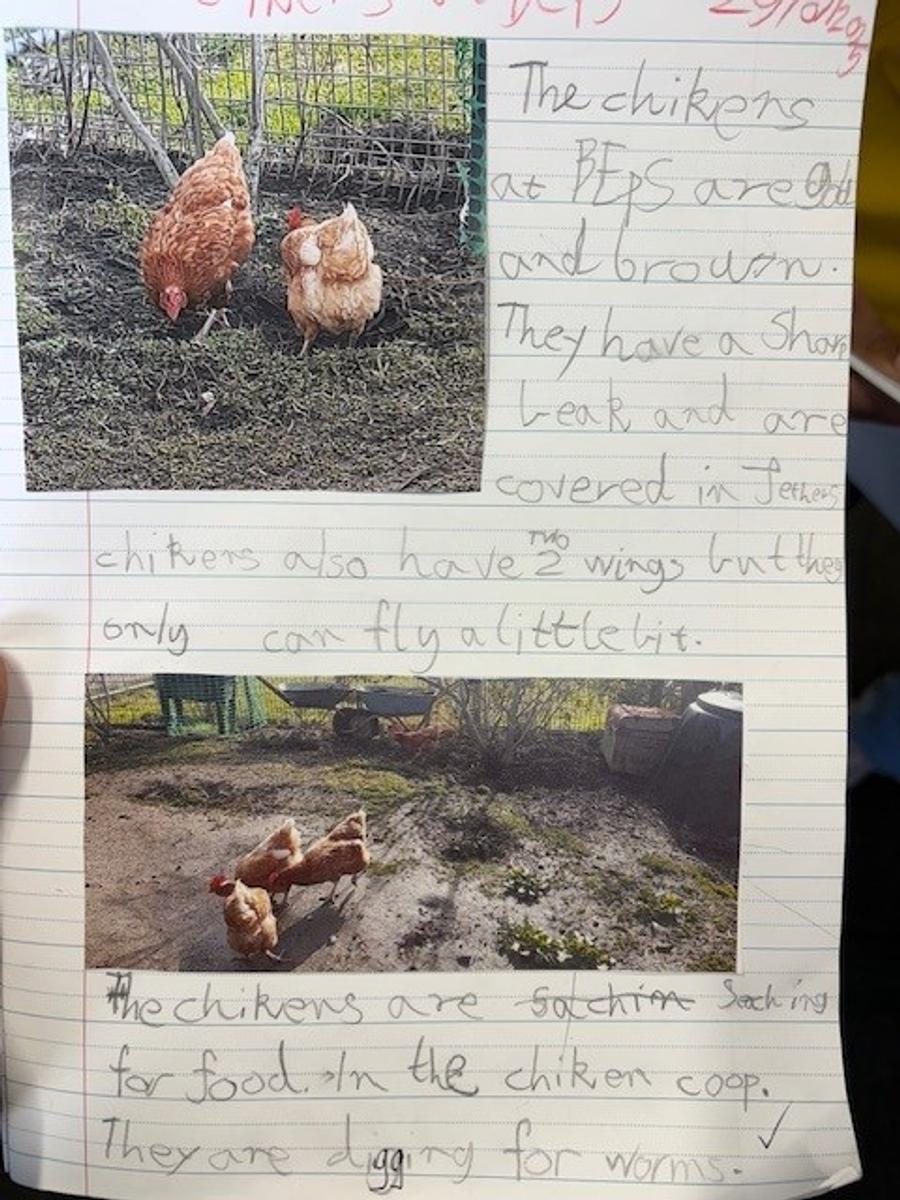 The chikens
at BEPS are
and brown.
They have a Sharp
beak and are
covered in Fethers
chikens also have two 2 wings but they
only can fly a little bit.
The chikens are satchin Seaching
for food. In the chiken coop.
They are digging for worms.